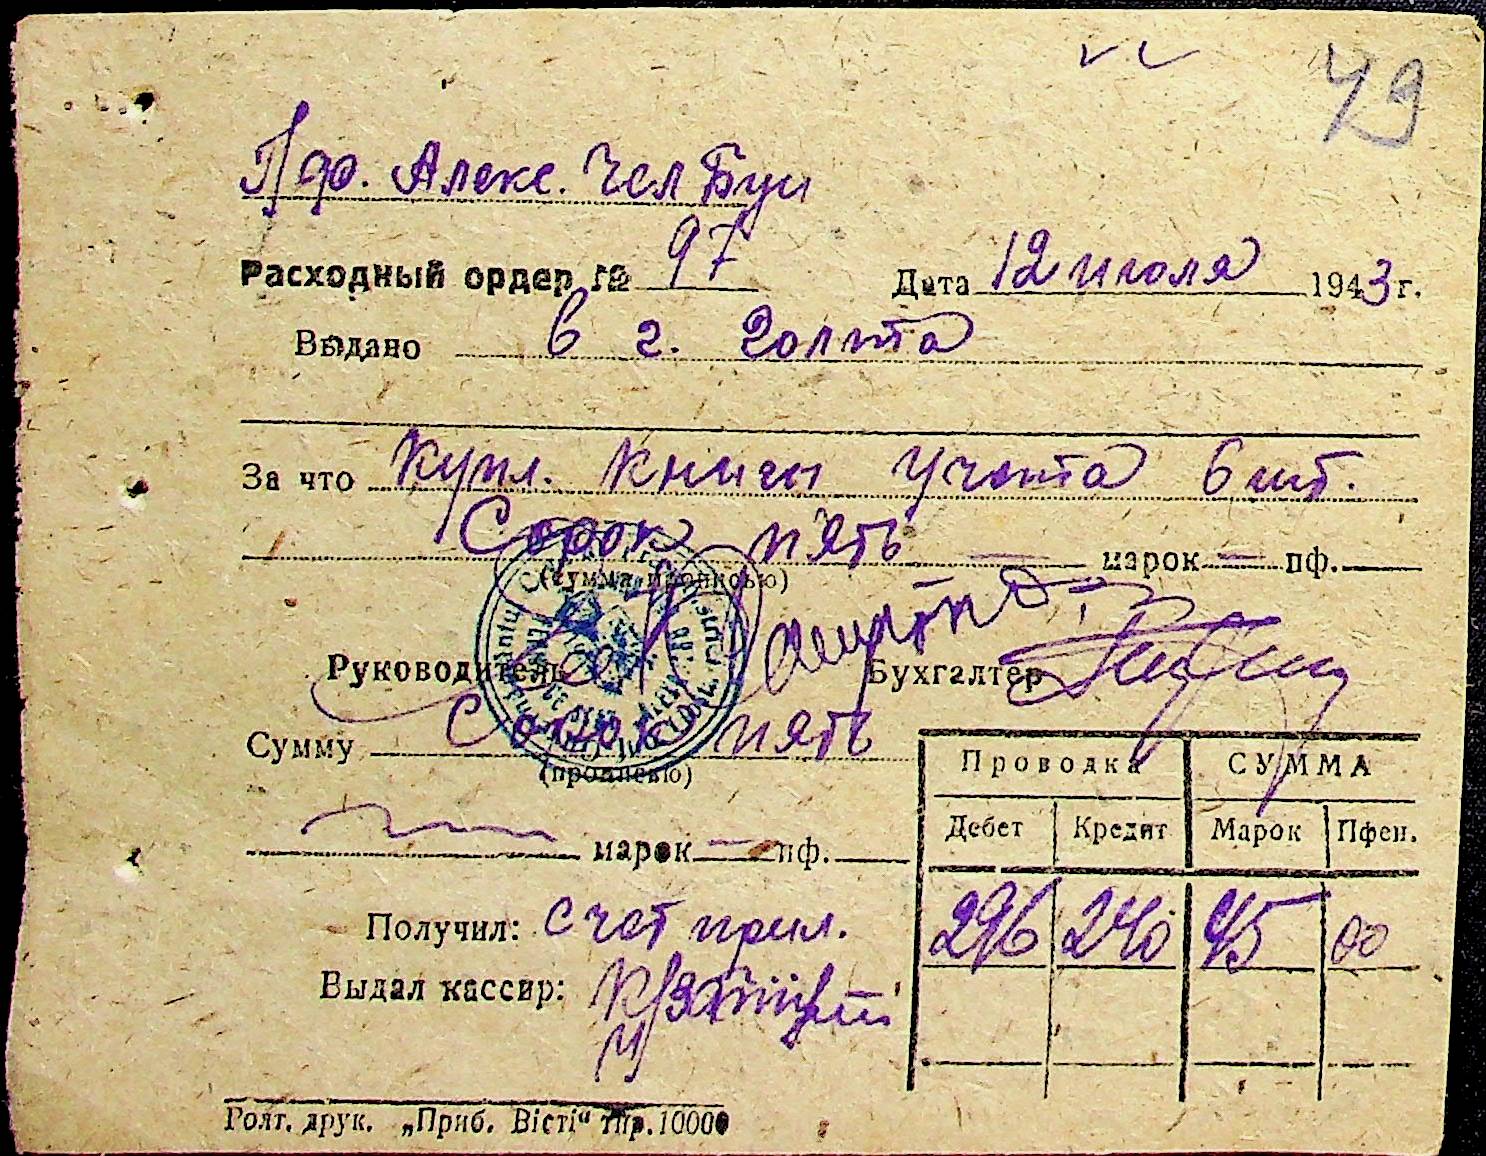 49
Пр. ф. Алекс. Чел Буи
Расходный ордер № 97 Дата 12 июля 1943 г.
Выдано в г. Голта
За что Купл. книги учета 6 шт.
Сорок пять — марок — пф.
(сумма прописью)
Руководитель Бухгалтер
Сумму Сорок пять
(прописью)
марок — пф.
Проводка СУММА
Дебет Кредит Марок Пфен.
296 240 45 00
Получил: счет прил.
Выдал кассир:
Голт. друк. „Приб. Вісті“ тир. 10000